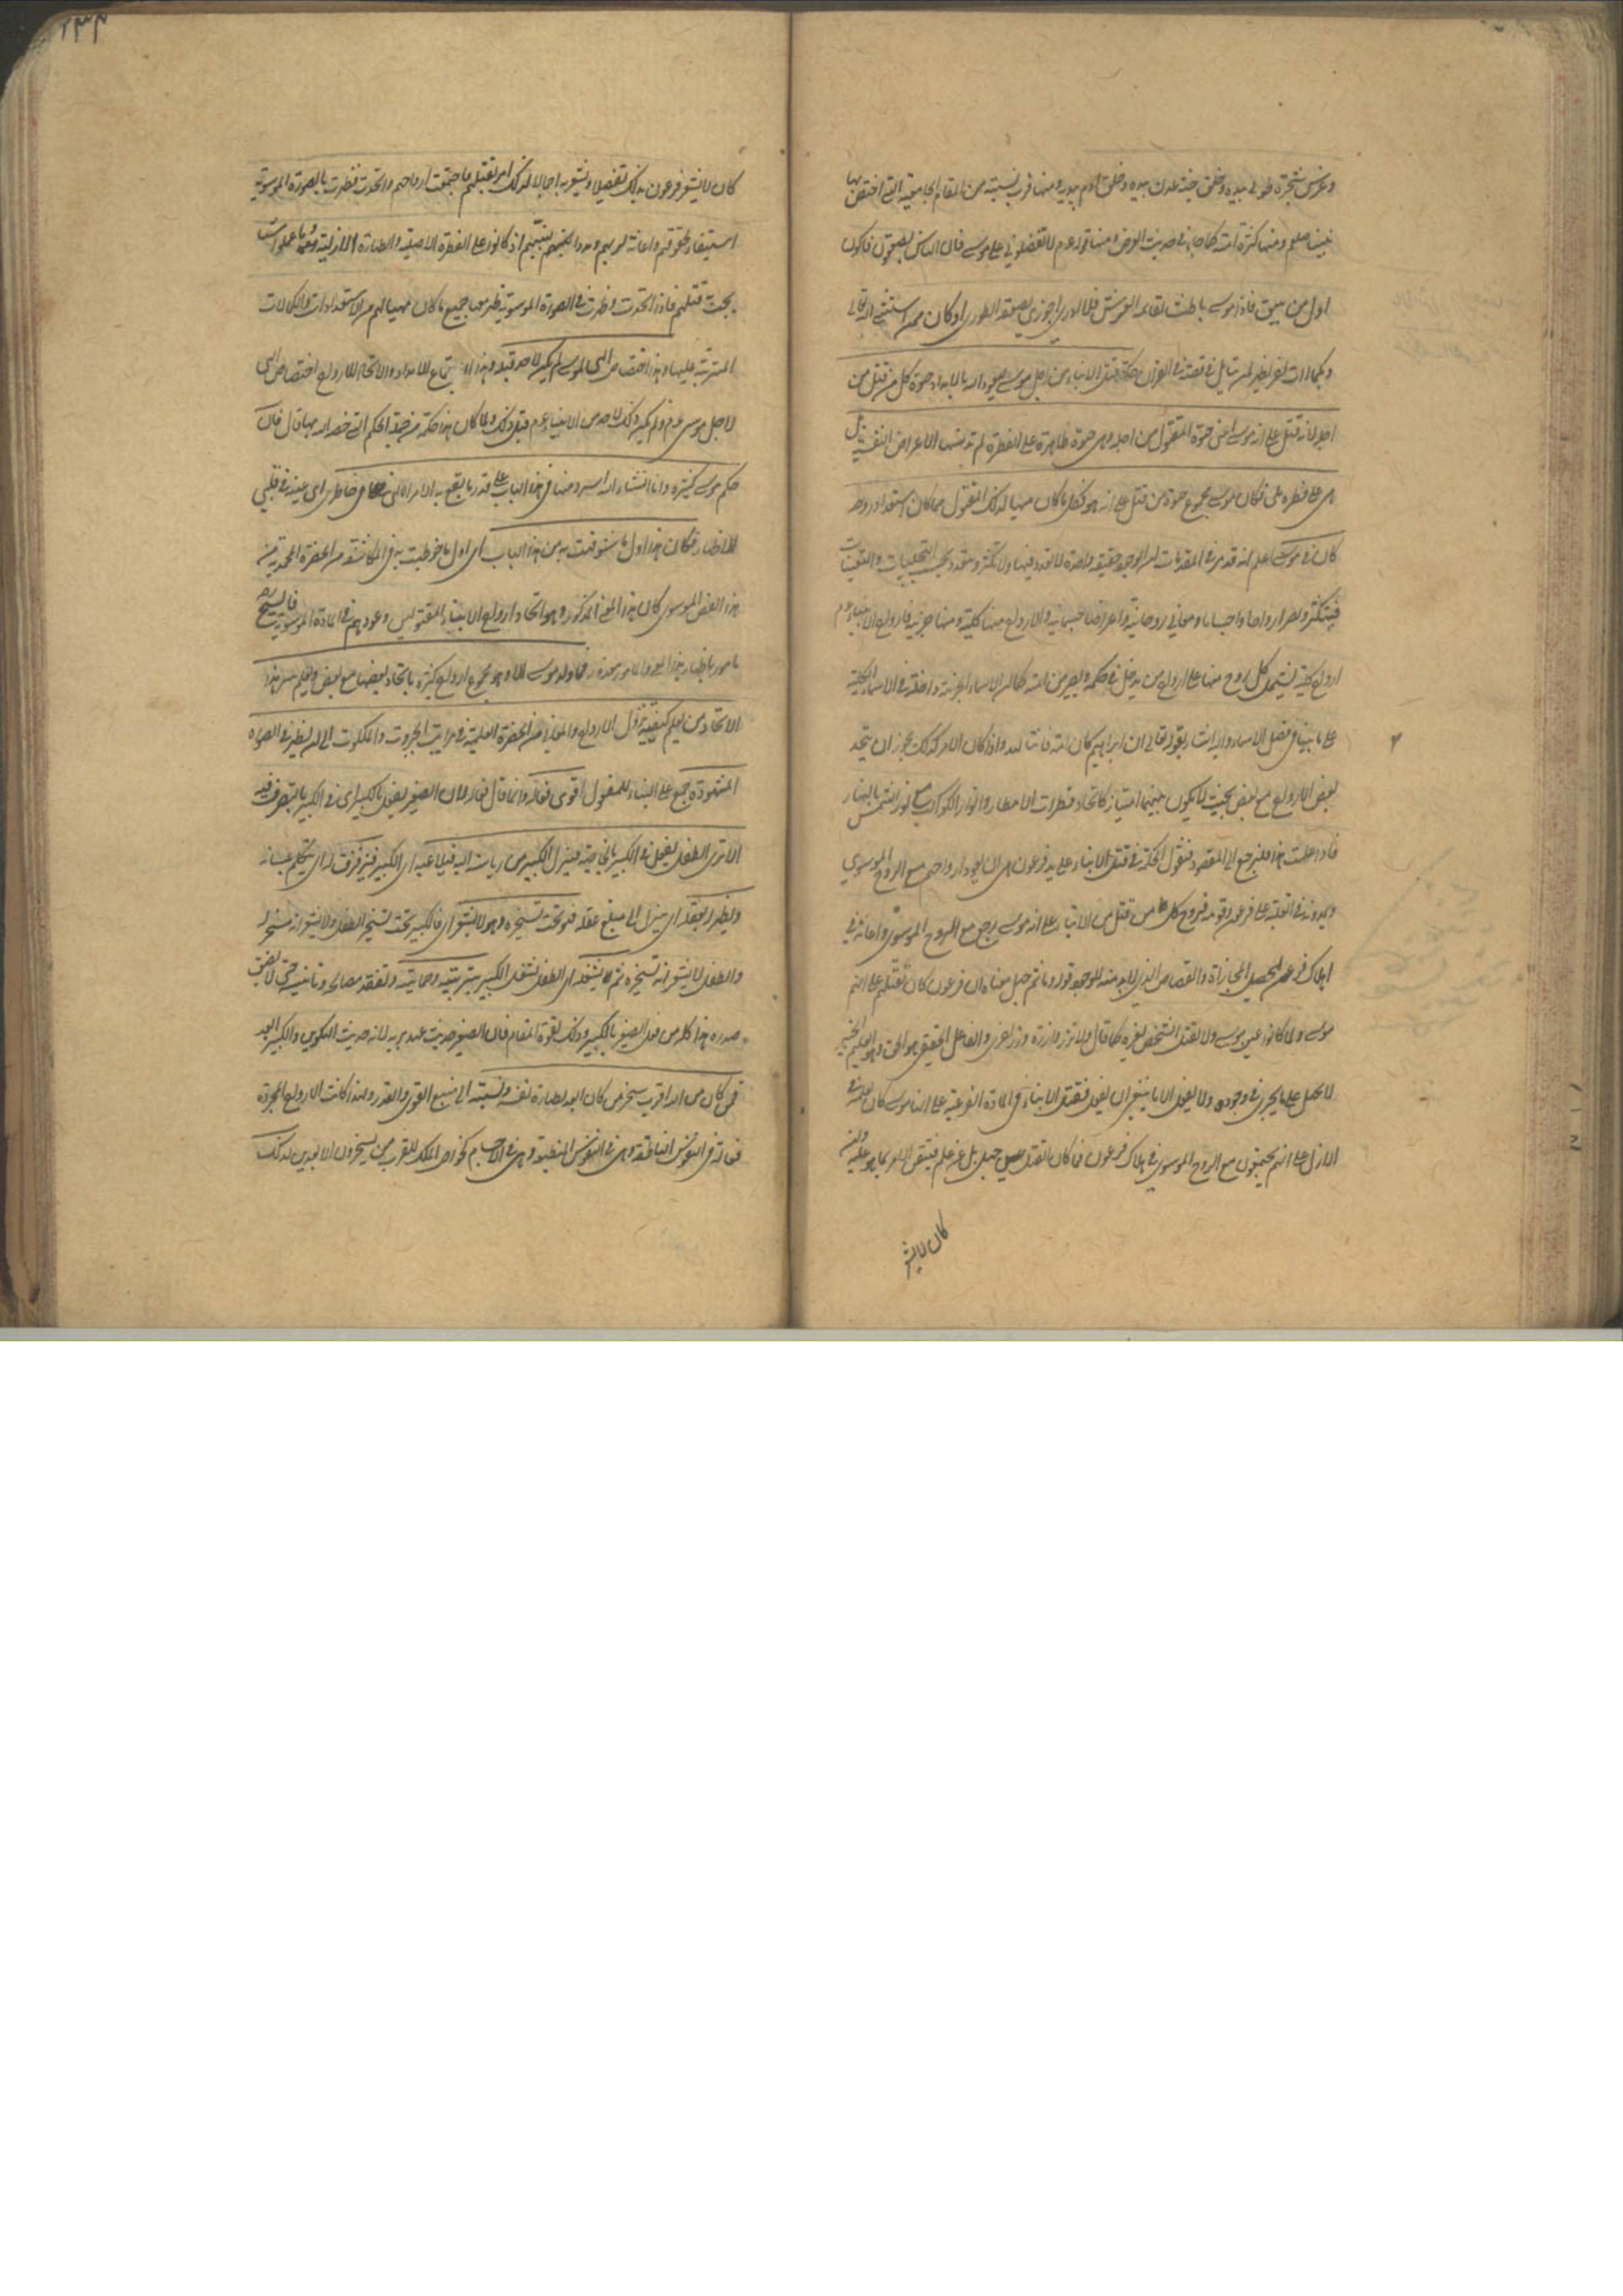 وغرس شجرة طوبى بيده وخلق جنة عدن بيده وخلق آدم بيديه ومنها قرب نسبته من المقام الجامعية التي اختص بها
نبينا صلعم ومنها كثرة امته كما جاء في حديث العرض ومنها قوله عم لا تفضلوني على موسى فان الناس يصعقون فاكون
اول من يفيق فاذا موسى باطش بقائمة العرش فلا ادري اجوزي بصعقة الطور او كان ممن استثنى الله تعالى
حكمة قتل الابناء من اجل موسى ليعود اليه بالامداد حيوة كل من قتل من
اجله لانه قتل على انه موسى اعني حيوة المقتول من اجله وهي حيوة طاهرة على الفطرة لم تدنسها الاعراض النفسية بل
هي على فطرة بلى فكان موسى مجموع حيوة من قتل على انه هو فكل ما كان مهيا لذلك المقتول مما كان استعداد روحه
كان في موسى اعلم انه قد مر في المقدمات ان الوجود حقيقة واحدة لا تعدد فيها ولا تكثر وتتعدد بحسب التجليات والتعينات
فيتكثر ويصير ارواحا واجساما ومعاني روحانية واعراضا جسمانية والارواح منها كلية ومنها جزئية فارواح الانبياء عم
ارواح كلية يشتمل كل روح منها على ارواح من يدخل في حكمه ويصير من امته كما ان الاسماء الجزئية داخلة في الاسماء الكلية
على ما بينا في فصل الاسماء واليه اشار بقوله تعالى ان ابراهيم كان امة قانتا لله واذا كان الامر كذلك يجوز ان يتحد
بعض الارواح مع بعض بحيث لا يكون بينهما امتياز كاتحاد قطرات الامطار وانوار الكواكب مع نور الشمس بالنهار
فاذا علمت هذا فلنرجع الى المقصود فنقول الحكمة في قتل الابناء على يد فرعون هي ان يعود ارواحهم مع الروح الموسوي
ويمدونه في الغلبة على فرعون وقومه فروح كل من قتل من الابناء على انه موسى رجع مع الروح الموسوي واعانه في
اهلاك فرعون ليحصل المجازاة والقصاص الذي لا بد منه للوجود قوله وما ثم جهل معناه ان فرعون كان يقتلهم على انهم
موسى ولما كانوا عين موسى ولا يقتل الشخص لغيره كما قال ولا تزر وازرة وزر اخرى والفاعل الحقيقي هو الحق وهو العليم الخبير
لا يجهل على ما يجري في وجوده ولا يفعل الا ما ينبغي ان يفعل فقتل الابناء في المادة الفرعونية على انها موسى كان لعلمه في
الازل على انهم يجتمعون مع الروح الموسوي في هلاك فرعون فما كان القتل عن جهل بل عن علم فيتقن الامر بما هو عليه وان
كان لا يشعر
٢٣٤
كان لا يشعر فرعون بذلك تفصيلا ويشعر به اجمالا لذلك امر بقتلهم فاجتمعت ارواحهم واتحدت فظهرت بالصورة الموسوية
استيفاء لحقوقهم واعانة لربهم ومددا لنبيهم اذ كانوا على الفطرة الاصلية والطهارة الازلية وما عملوا شيئا
يجب به قتلهم فاذا اتحدت وظهرت في الصورة الموسوية ظهر معها جميع ما كان مهيا لهم من الاستعدادات والكمالات
المترتبة عليها وهذا اختصاص الهي لموسى لم يكن لاحد قبله وهذا اي اجتماع الامداد والاتحاد للارواح اختصاص الهي
لاجل موسى عم ولم يكن ذلك لاحد من الانبياء عم قبل ذلك ولما كان هذا حكمة من جملة الحكم التي خصه الله بها قال فان
حكم موسى كثيرة وانا ان شاء الله اسرد منها في هذا الباب على قدر ما يقع به الامر الالهي في خاطري اي عينه في قلبي
للاظهار فكان هذا اول ما شوفهت به من هذا الباب اي اول ما خوطبت به في المكاشفة من الحضرة المحمدية من
هذا الفص الموسوي كان هذا المعنى المذكور وهو اتحاد ارواح الانبياء المقتولين وعودهم في المادة الموسوية فالشيخ
مامور باظهار هذا المعنى والمامور معذور فما ولد موسى الا وهو مجموع ارواح كثيرة باتحاد بعضها مع بعض ويعلم سر هذا
الاتحاد من يعلم كيفية تنزل الارواح والمعاني من الحضرة العلمية في مراتب الجبروت والملكوت الى ان يظهر في الصورة
المشهودة جمع على البناء للمفعول قوى فعالة وانما قال فعالة لان الصغير يفعل بالكبير اي في الكبير بالتصرف فيه
الا ترى الطفل يفعل في الكبير بالخاصية فينزل الكبير من رياسته اليه فيلاعبه اي الكبير فيزقزق له اي يتكلم بلسانه
ويظهر له بعقله اي ينزل الى مبلغ عقله فهو تحت تسخيره وهو لا يشعر اي فالكبير تحت تسخير الطفل ولا يشعر انه مسخر له
والطفل لا يشعر انه تسخيره ثم يشغله اي الطفل يشغل الكبير بتربيته وحمايته وتفقد مصالحه وتانيسه حتى لا يضيق
صدره هذا كله من فعل الصغير بالكبير وذلك لقوة المقام فان الصغير حديث عهد بربه لانه حديث التكوين والكبير ابعد
فمن كان من الله اقرب سخر من كان ابعد لطهارة نفسه ونسبته الى منبع القوى والقدر ولهذا كانت الارواح المجردة
فعالة في النفوس الناطقة وهي في النفوس المنطبعة وهي في الاجسام كخواص الملك للقرب منه يسخرون الابعدين لذلك